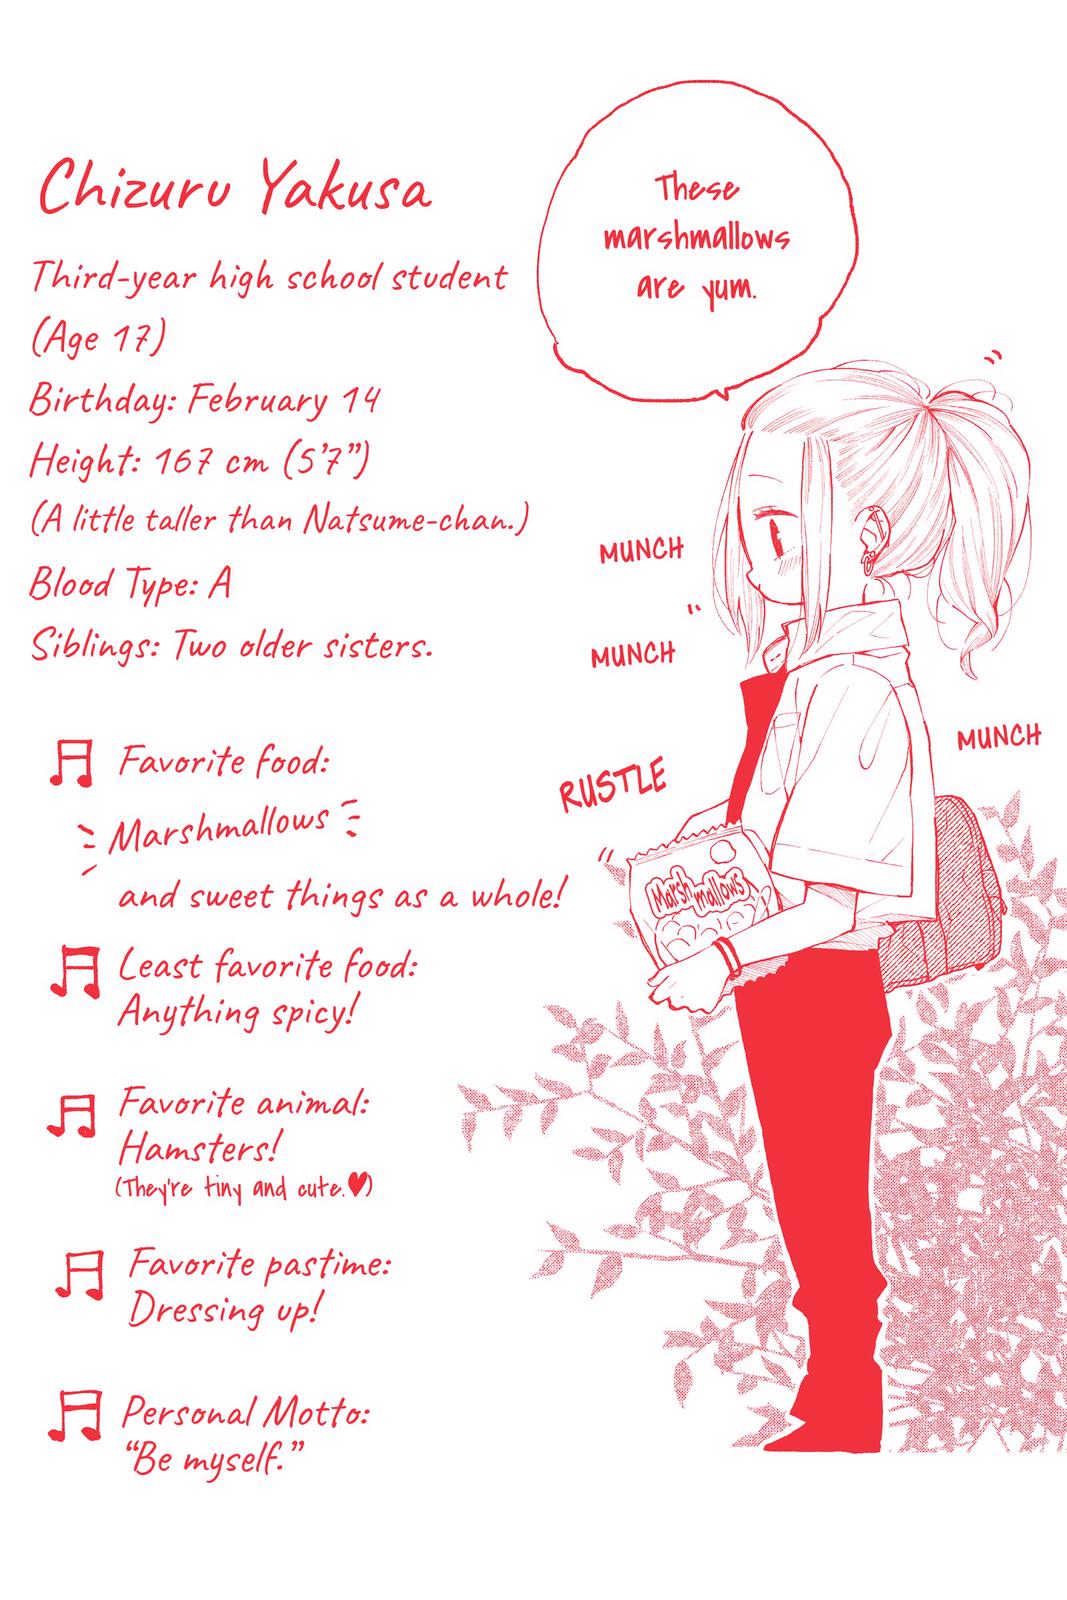 Chizuru Yakusa
Third-year high school student
(Age 17)
Birthday: February 14
Height: 167 cm (5'7")
(A little taller than Natsume-chan.)
Blood Type: A
Siblings: Two older sisters.
Favorite food:
Marshmallows
and sweet things as a whole!
Least favorite food:
Anything spicy!
Favorite animal:
Hamsters!
(They're tiny and cute.♥)
Favorite pastime:
Dressing up!
Personal Motto:
“Be myself.”
These
marshmallows
are yum.
MUNCH
MUNCH
MUNCH
RUSTLE
Marsh
mallows